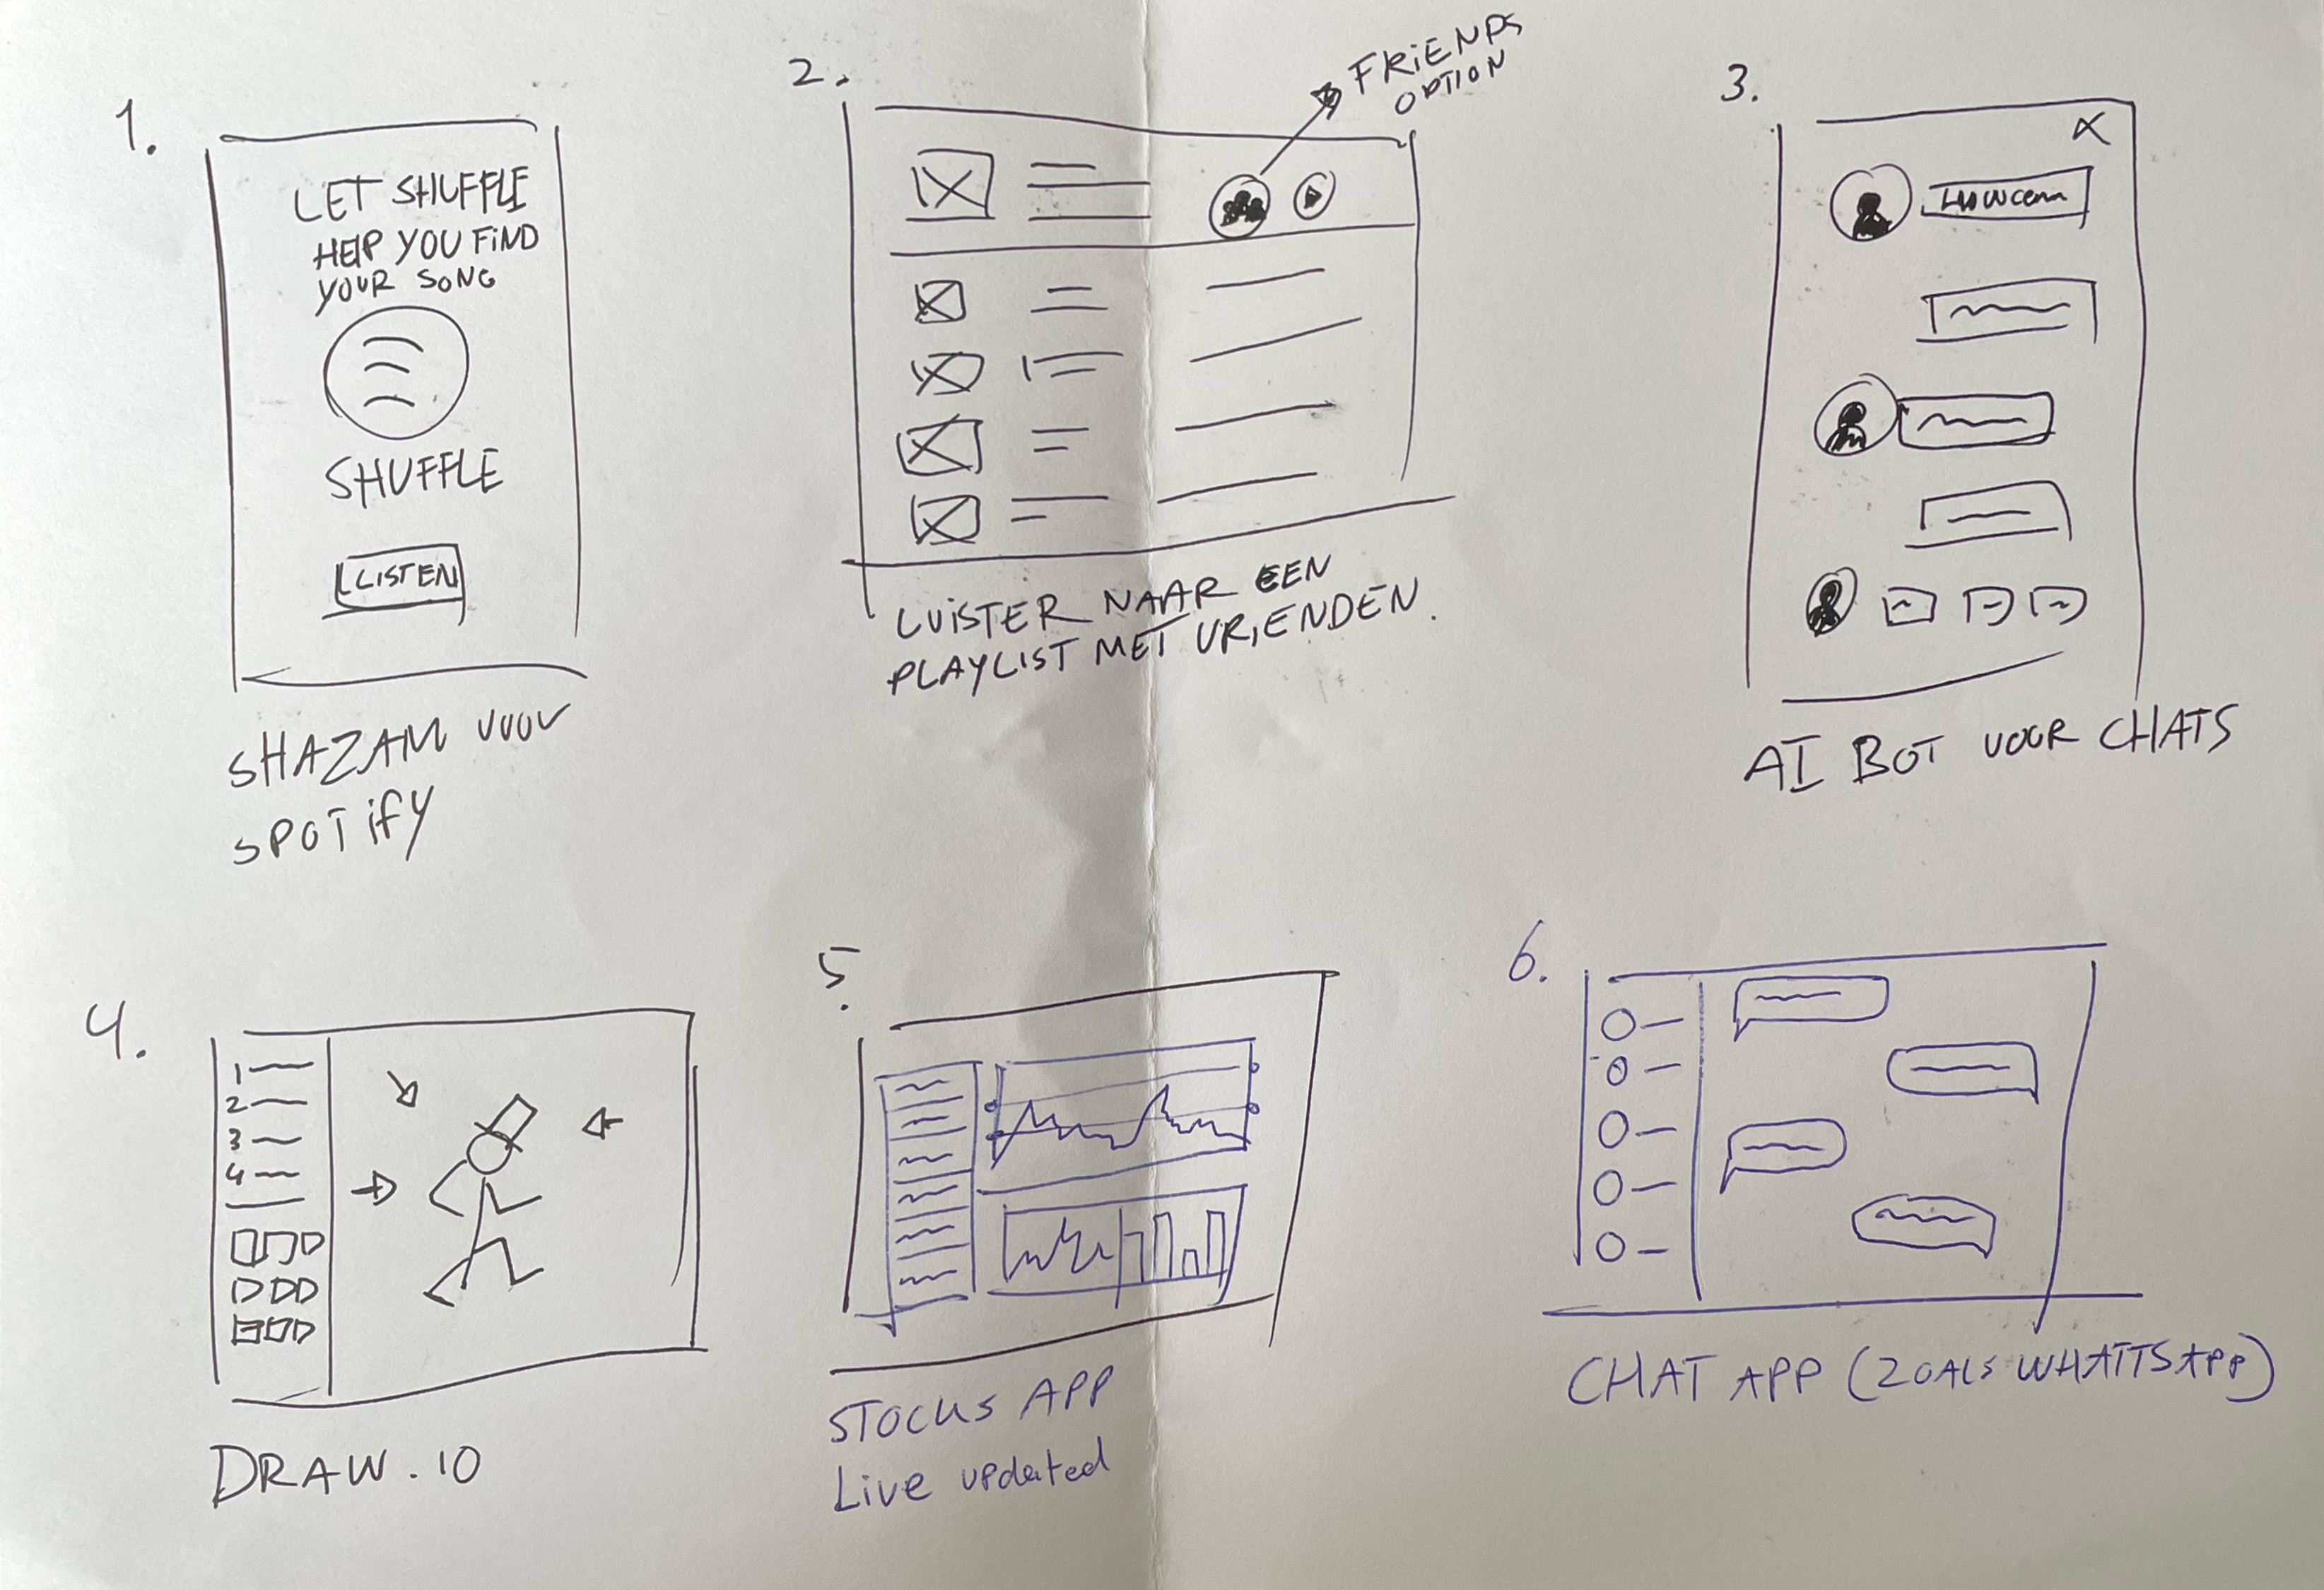 1.
LET SHUFFLE
HELP YOU FIND
YOUR SONG
SHUFFLE
LISTEN
SHAZAM VOOR
SPOTIFY
2.
FRIENDS
OPTION
LUISTER NAAR EEN
PLAYLIST MET VRIENDEN.
3.
X
AI BOT VOOR CHATS
4.
1
2
3
4
DRAW.IO
5.
STOCKS APP
Live updated
6.
CHAT APP (ZOALS WHATTSAPP)